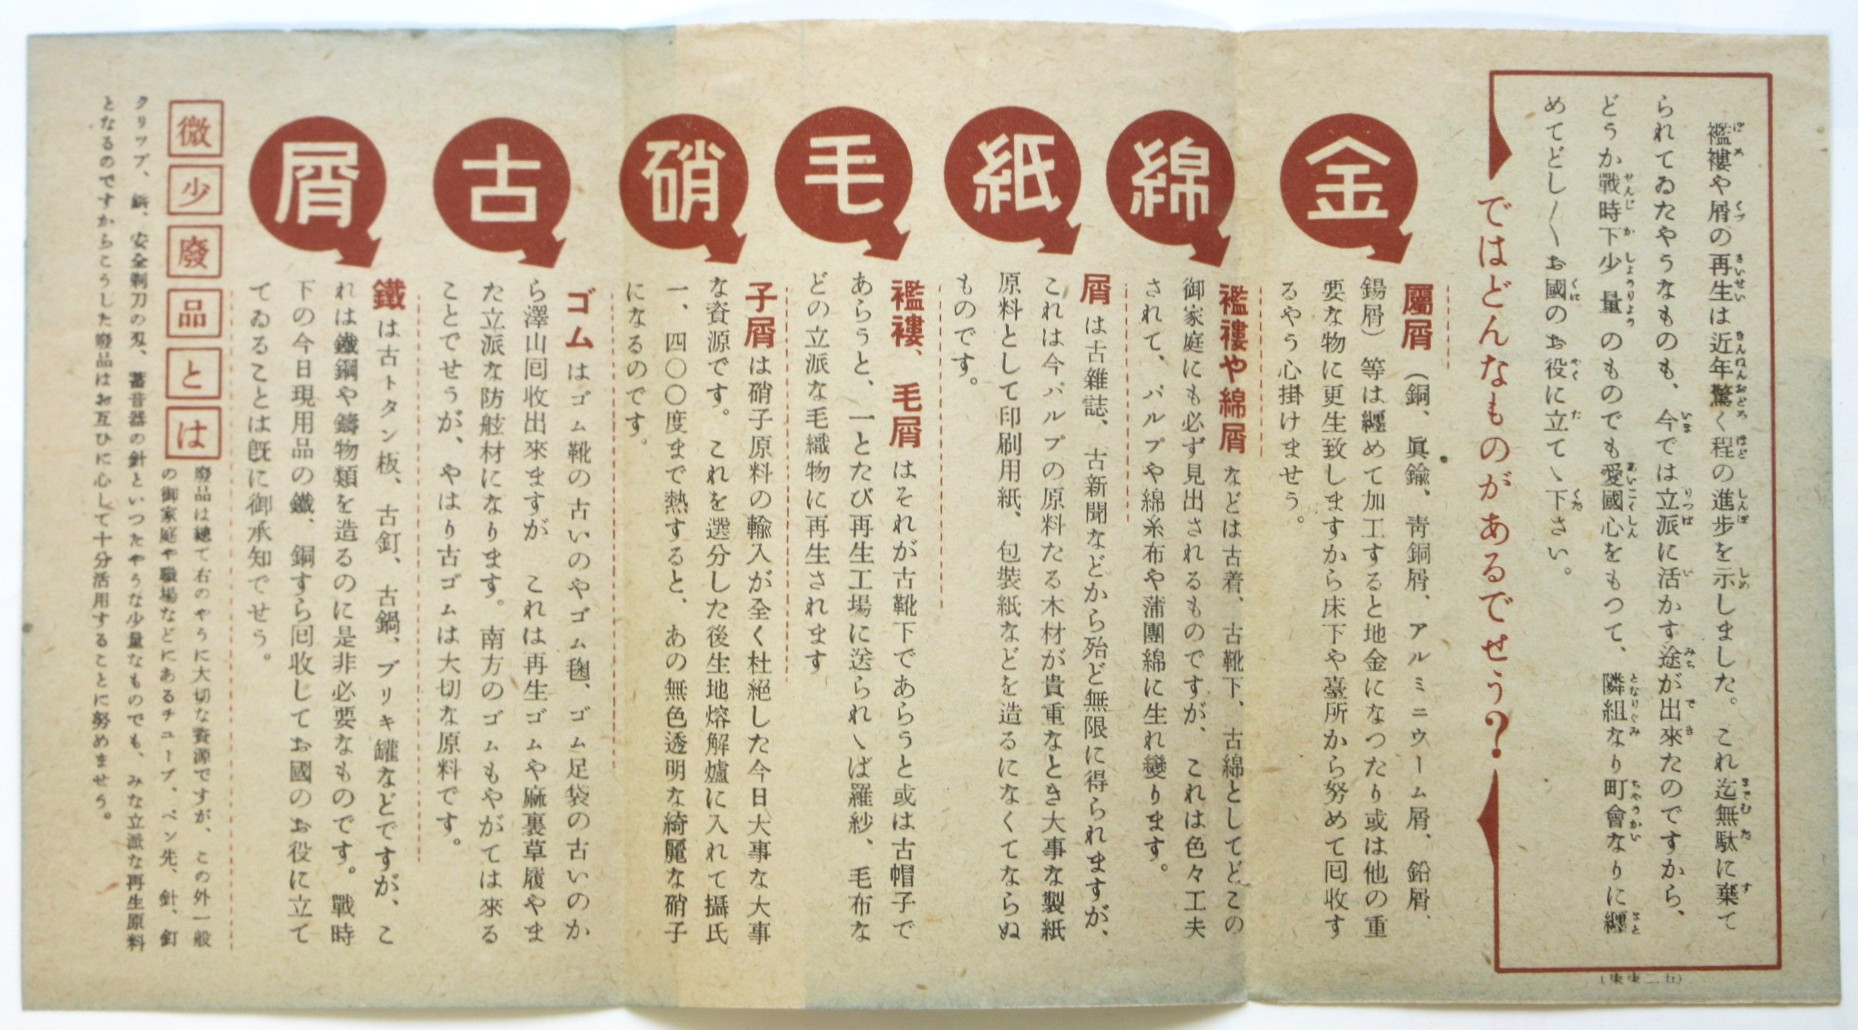 襤褸や屑の再生は近年驚く程の進步を示しました。これ迄無駄に棄て
られてゐたやうなものも、今では立派に活かす途が出來たのですから、
どうか戰時下少量のものでも愛國心をもつて、隣組なり町會なりに纒
めてどし〳〵お國のお役に立てゝ下さい。
ではどんなものがあるでせう?
金
屬屑(銅、眞鍮、靑銅屑、アルミニウーム屑、鉛屑、
錫屑)等は纒めて加工すると地金になつたり或は他の重
要な物に更生致しますから床下や臺所から努めて囘收す
るやう心掛けませう。
綿
襤褸や綿屑などは古着、古靴下、古綿としてどこの
御家庭にも必ず見出されるものですが、これは色々工夫
されて、パルプや綿糸布や蒲團綿に生れ變ります。
紙
屑は古雜誌、古新聞などから殆ど無限に得られますが、
これは今パルプの原料たる木材が貴重なとき大事な製紙
原料として印刷用紙、包裝紙などを造るになくてならぬ
ものです。
毛
襤褸、毛屑はそれが古靴下であらうと或は古帽子で
あらうと、一とたび再生工場に送られゝば羅紗、毛布な
どの立派な毛織物に再生されます
硝
子屑は硝子原料の輸入が全く杜絕した今日大事な大事
な資源です。これを選分した後生地熔解爐に入れて攝氏
一、四〇〇度まで熱すると、あの無色透明な綺麗な硝子
になるのです。
古
ゴムはゴム靴の古いのやゴム毬、ゴム足袋の古いのか
ら澤山囘收出來ますが これは再生ゴムや麻裏草履やま
た立派な防舷材になります。南方のゴムもやがては來る
ことでせうが、やはり古ゴムは大切な原料です。
屑
鐵は古トタン板、古釘、古鍋、ブリキ罐などですが、こ
れは鐵鋼や鑄物類を造るのに是非必要なものです。戰時
下の今日現用品の鐵、銅すら囘收してお國のお役に立て
てゐることは旣に御承知でせう。
微少廢品とは
廢品は總て右のやうに大切な資源ですが、この外一般
の御家庭や職場などにあるチューブ、ペン先、針、釘
クリップ、鋲、安全剃刀の刄、蓄音器の針といつたやうな少量なものでも、みな立派な再生原料
となるのですからこうした廢品はお互ひに心して十分活用することに努めませう。